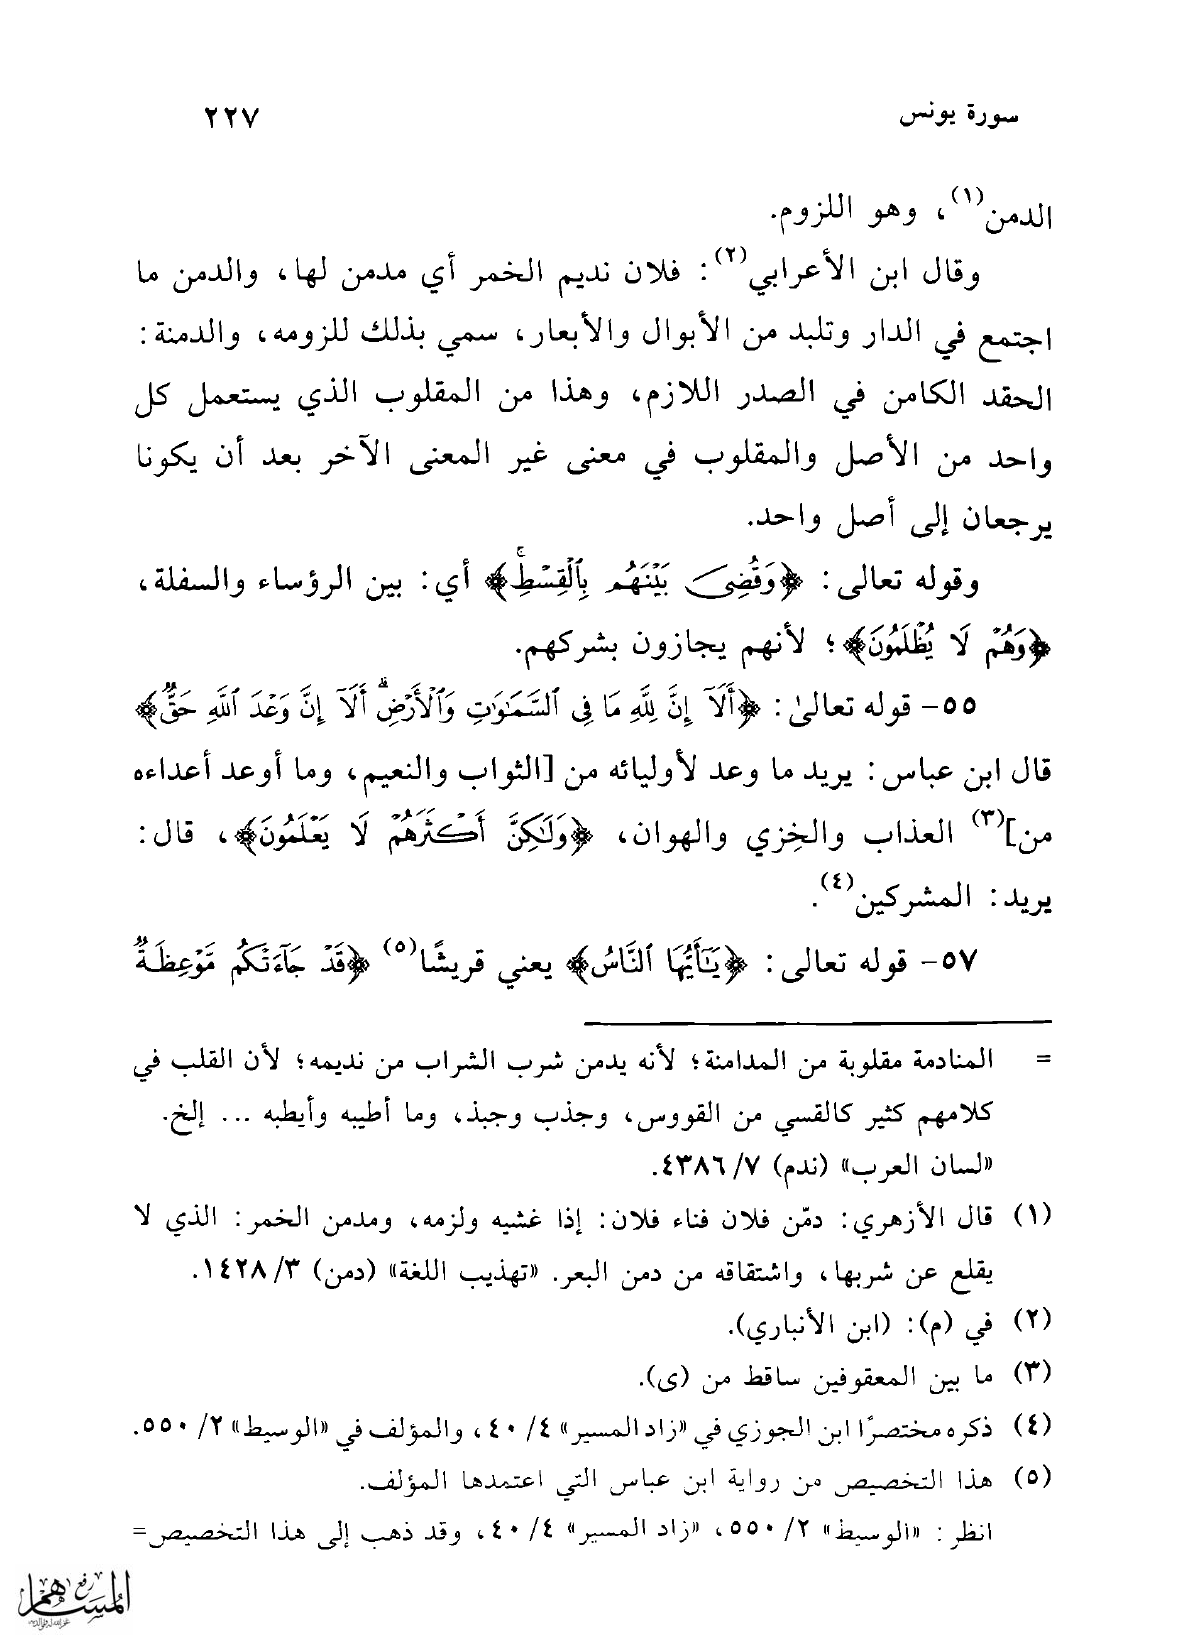 سورة يونس ٢٢٧
الدمن(١)، وهو اللزوم.
وقال ابن الأعرابي(٢): فلان نديم الخمر أي مدمن لها، والدمن ما
اجتمع في الدار وتلبد من الأبوال والأبعار، سمي بذلك للزومه، والدمنة:
الحقد الكامن في الصدر اللازم، وهذا من المقلوب الذي يستعمل كل
واحد من الأصل والمقلوب في معنى غير المعنى الآخر بعد أن يكونا
يرجعان إلى أصل واحد.
وقوله تعالى: ﴿وَقُضِىَ بَيْنَهُم بِٱلْقِسْطِۚ﴾ أي: بين الرؤساء والسفلة،
﴿وَهُمْ لَا يُظْلَمُونَ﴾؛ لأنهم يجازون بشركهم.
٥٥- قوله تعالىٰ: ﴿أَلَآ إِنَّ لِلَّهِ مَا فِى ٱلسَّمَٰوَٰتِ وَٱلْأَرْضِۗ أَلَآ إِنَّ وَعْدَ ٱللَّهِ حَقٌّ﴾
قال ابن عباس: يريد ما وعد لأوليائه من [الثواب والنعيم، وما أوعد أعداءه
من](٣) العذاب والخِزي والهوان، ﴿وَلَٰكِنَّ أَكْثَرَهُمْ لَا يَعْلَمُونَ﴾، قال:
يريد: المشركين(٤).
٥٧- قوله تعالى: ﴿يَٰٓأَيُّهَا ٱلنَّاسُ﴾ يعني قريشًا(٥) ﴿قَدْ جَآءَتْكُم مَّوْعِظَةٌ
= المنادمة مقلوبة من المدامنة؛ لأنه يدمن شرب الشراب من نديمه؛ لأن القلب في
كلامهم كثير كالقسي من القووس، وجذب وجبذ، وما أطيبه وأيطبه ... إلخ.
«لسان العرب» (ندم) ٧/ ٤٣٨٦.
(١) قال الأزهري: دمّن فلان فناء فلان: إذا غشيه ولزمه، ومدمن الخمر: الذي لا
يقلع عن شربها، واشتقاقه من دمن البعر. «تهذيب اللغة» (دمن) ٣/ ١٤٢٨.
(٢) في (م): (ابن الأنباري).
(٣) ما بين المعقوفين ساقط من (ى).
(٤) ذكره مختصرًا ابن الجوزي في «زاد المسير» ٤/ ٤٠، والمؤلف في «الوسيط» ٢/ ٥٥٠.
(٥) هذا التخصيص من رواية ابن عباس التي اعتمدها المؤلف.
انظر: «الوسيط» ٢/ ٥٥٠، «زاد المسير» ٤/ ٤٠، وقد ذهب إلى هذا التخصيص=